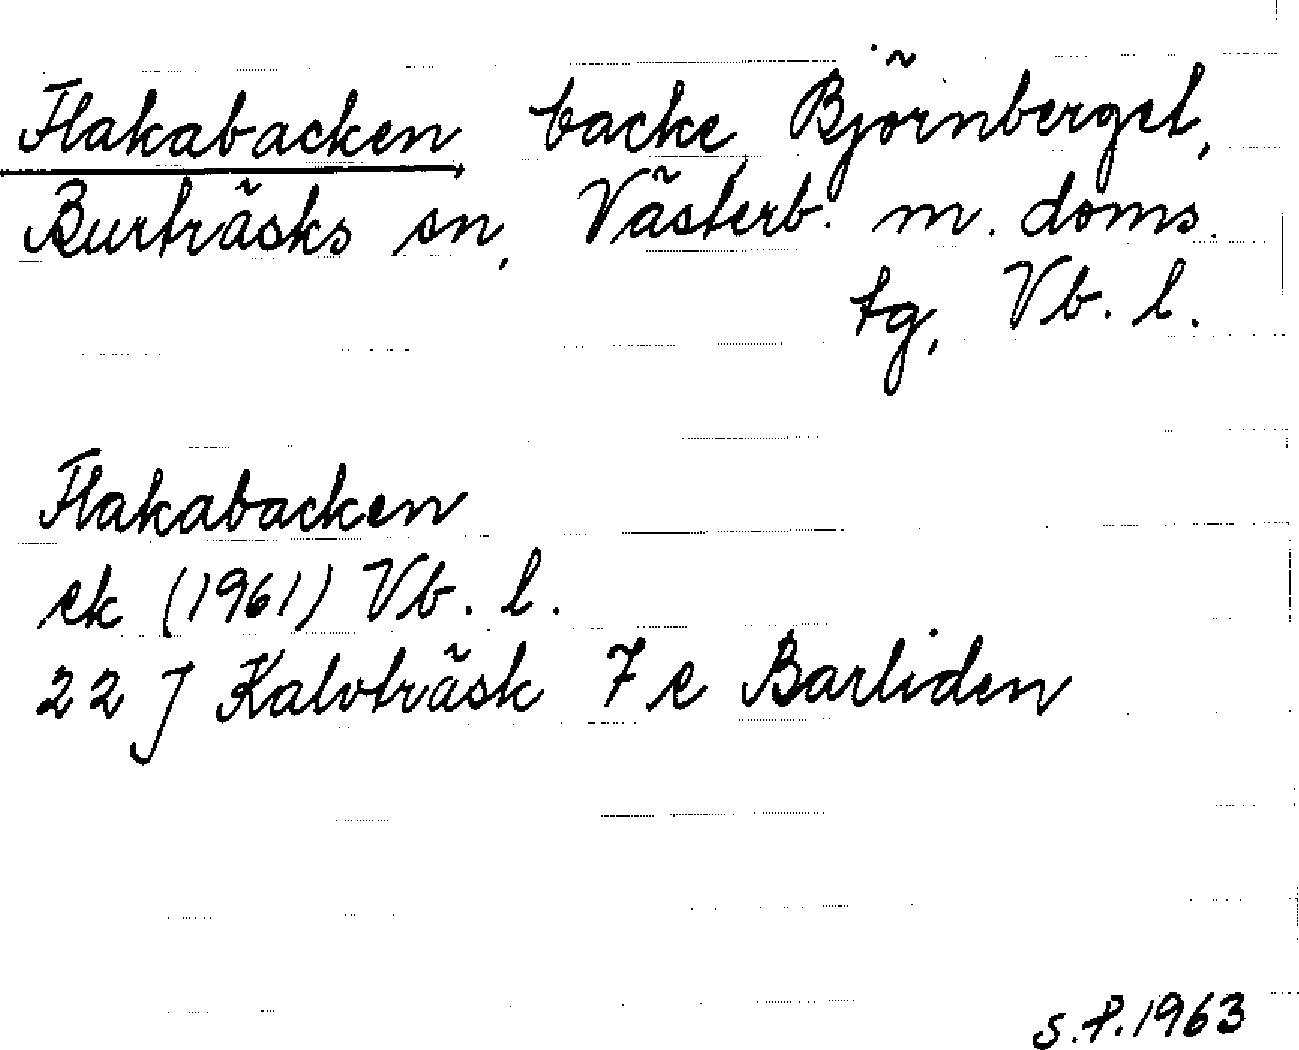 Flakabacken, backe, Björnberget,
Burträsks sn, Västerb. m. doms.
tg, Vb. l.
Flakabacken
ek (1961) Vb. l.
22 J Kalvträsk 7 e Barliden
S.P. 1963